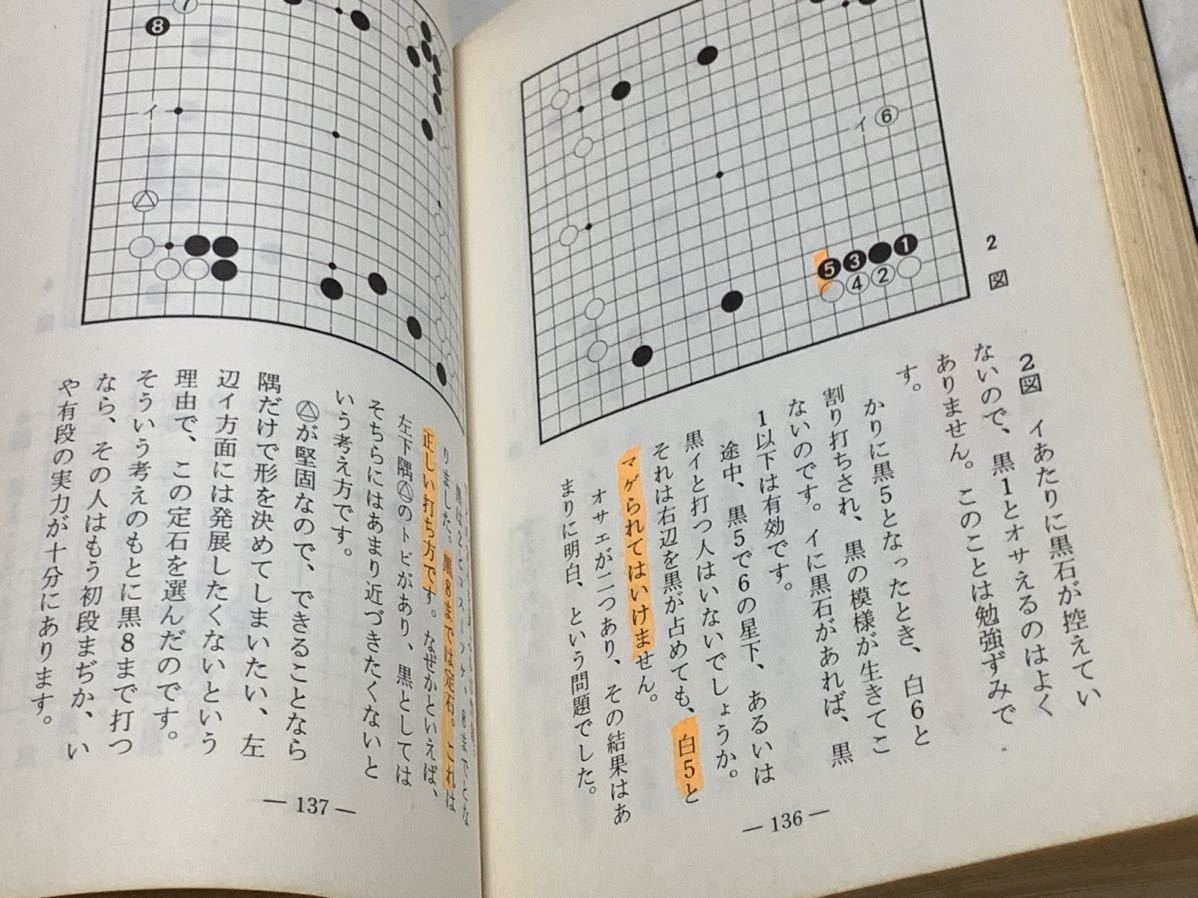 2図
2図　イあたりに黒石が控えてい
ないので、黒1とオサえるのはよく
ありません。このことは勉強ずみで
す。
かりに黒5となったとき、白6と
割り打ちされ、黒の模様が生きてこ
ないのです。イに黒石があれば、黒
1以下は有効です。
途中、黒5で6の星下、あるいは
黒イと打つ人はいないでしょうか。
それは右辺を黒が占めても、白5と
マゲられてはいけません。
オサエが二つあり、その結果はあ
まりに明白、という問題でした。
イ
6
1
3
5
2
4
— 136 —
7
8
イ
りました。黒8までは定石。これは
正しい打ち方です。なぜかといえば、
左下隅△のトビがあり、黒としては
そちらにはあまり近づきたくないと
いう考え方です。
△が堅固なので、できることなら
隅だけで形を決めてしまいたい、左
辺イ方面には発展したくないという
理由で、この定石を選んだのです。
そういう考えのもとに黒8まで打つ
なら、その人はもう初段まぢか、い
や有段の実力が十分にあります。
— 137 —